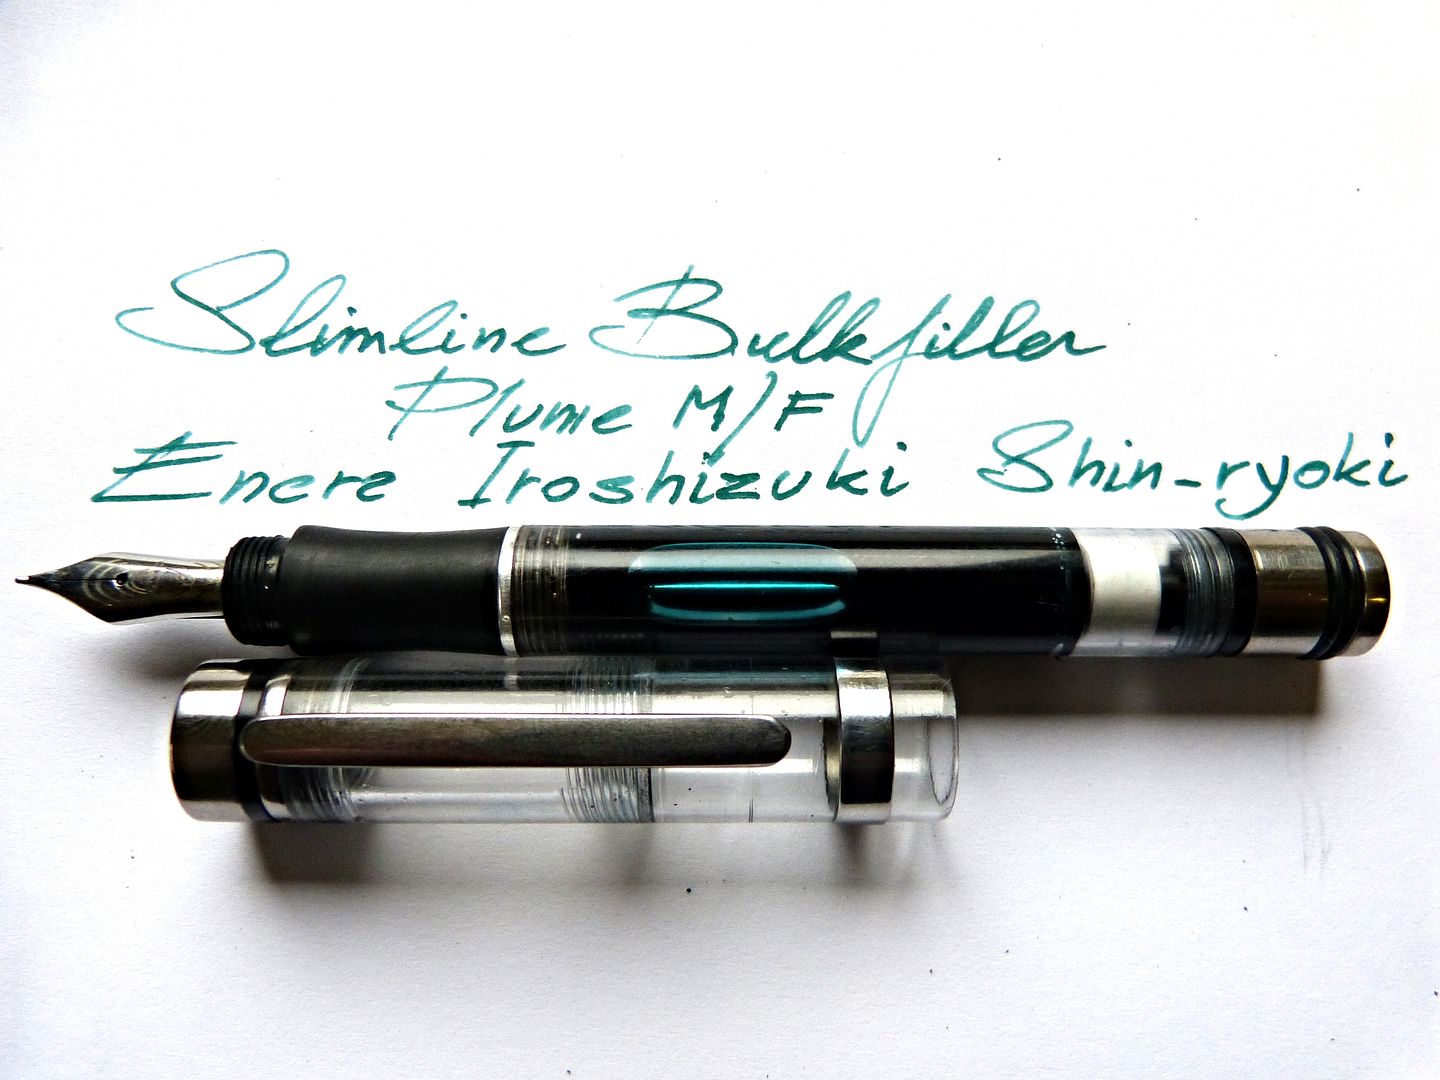 Slimline Bulkfiller
Plume M/F
Encre Iroshizuki Shin-ryoki